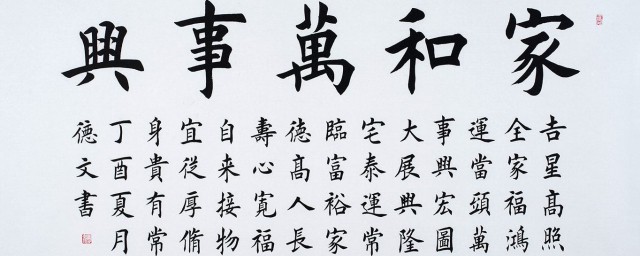 家和萬事興
吉星髙照
全家福鴻
運當頭萬
事興宏圖
大展興隆
宅泰運常
臨富裕家
徳髙人長
壽心寬福
自来接物
宜從厚脩
身貴有常
丁酉夏月
徳文書